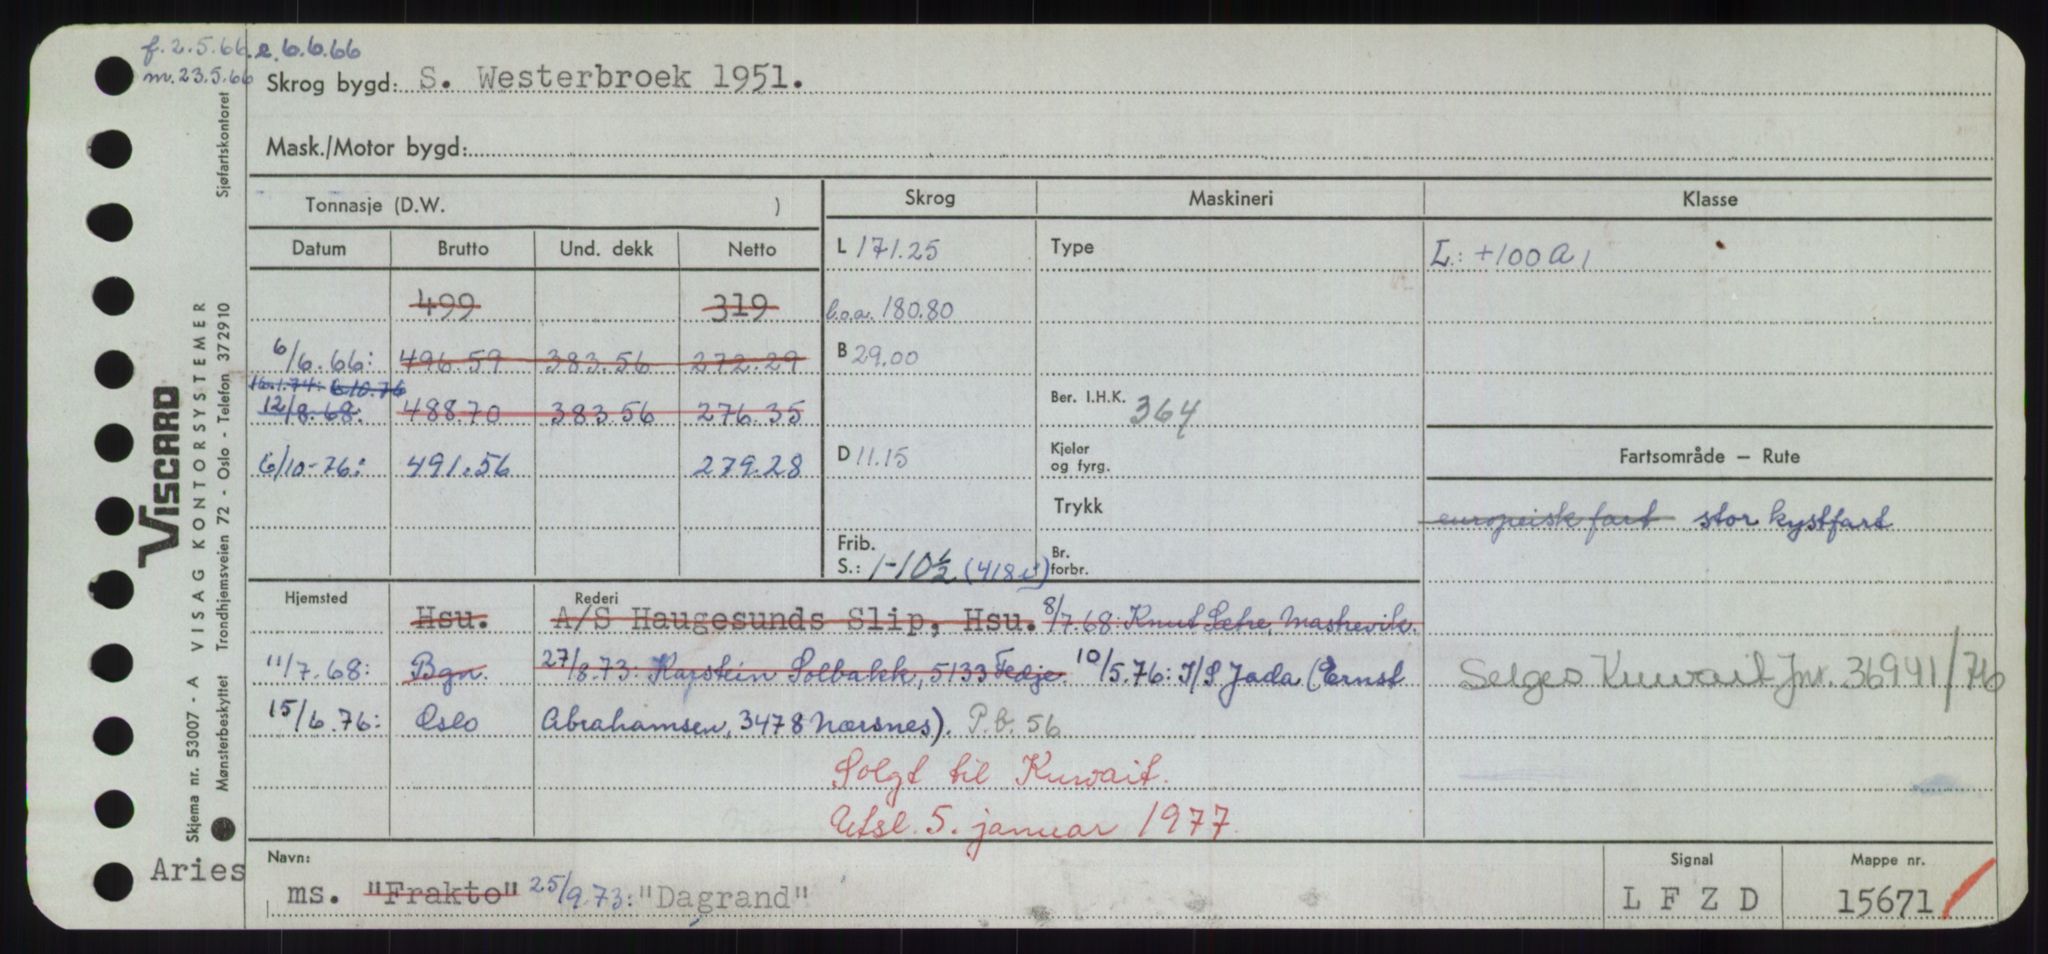 f. 2.5.66. e. 6.6.66
m. 23.5.66
Skrog bygd: S. Westerbroek 1951.
Mask./Motor bygd:
Tonnasje (D.W. )
Skrog
Maskineri
Klasse
Datum Brutto Und. dekk Netto
L 171.25
Type
L: +100 A 1
499 319
l.o.a. 180.80
6/6.66: 496.59 383.56 272.29
B 29.00
16.1.74: 6.10.76
12/8.68: 488.70 383.56 276.35
Ber. I.H.K. 364
6/10-76: 491.56 279.28
D 11.15
Kjeler
og fyrg.
Fartsområde — Rute
Trykk
europeisk fart stor kystfart
Frib.
S.: 1-10½ (418 )
Br.
forbr.
Hjemsted
Rederi
Hsu. A/S Haugesunds Slip, Hsu. 8/7.68: Knut Sætre, Mashevik.
11/7.68: Bgn. 27/8.73: Karstein Solbakk, 5133 Fedje. 10/5.76: I/S Jada (Ernst
Selges Kuwait Jnr. 36941/76
15/6.76: Oslo Abrahamsen, 3478 Nærsnes). P.b. 56
Solgt til Kuwait.
Utsl. 5. januar 1977.
Navn:
ms. "Frakto" 25/9.73: "Dagrand"
Signal
L F Z D
Mappe nr.
15671
Aries
VISCARD
Skjema nr. 53007 - A VISAG KONTORSYSTEMER
Mønsterbeskyttet Trondhjemsveien 72 - Oslo - Telefon 372910
Sjøfartskontoret